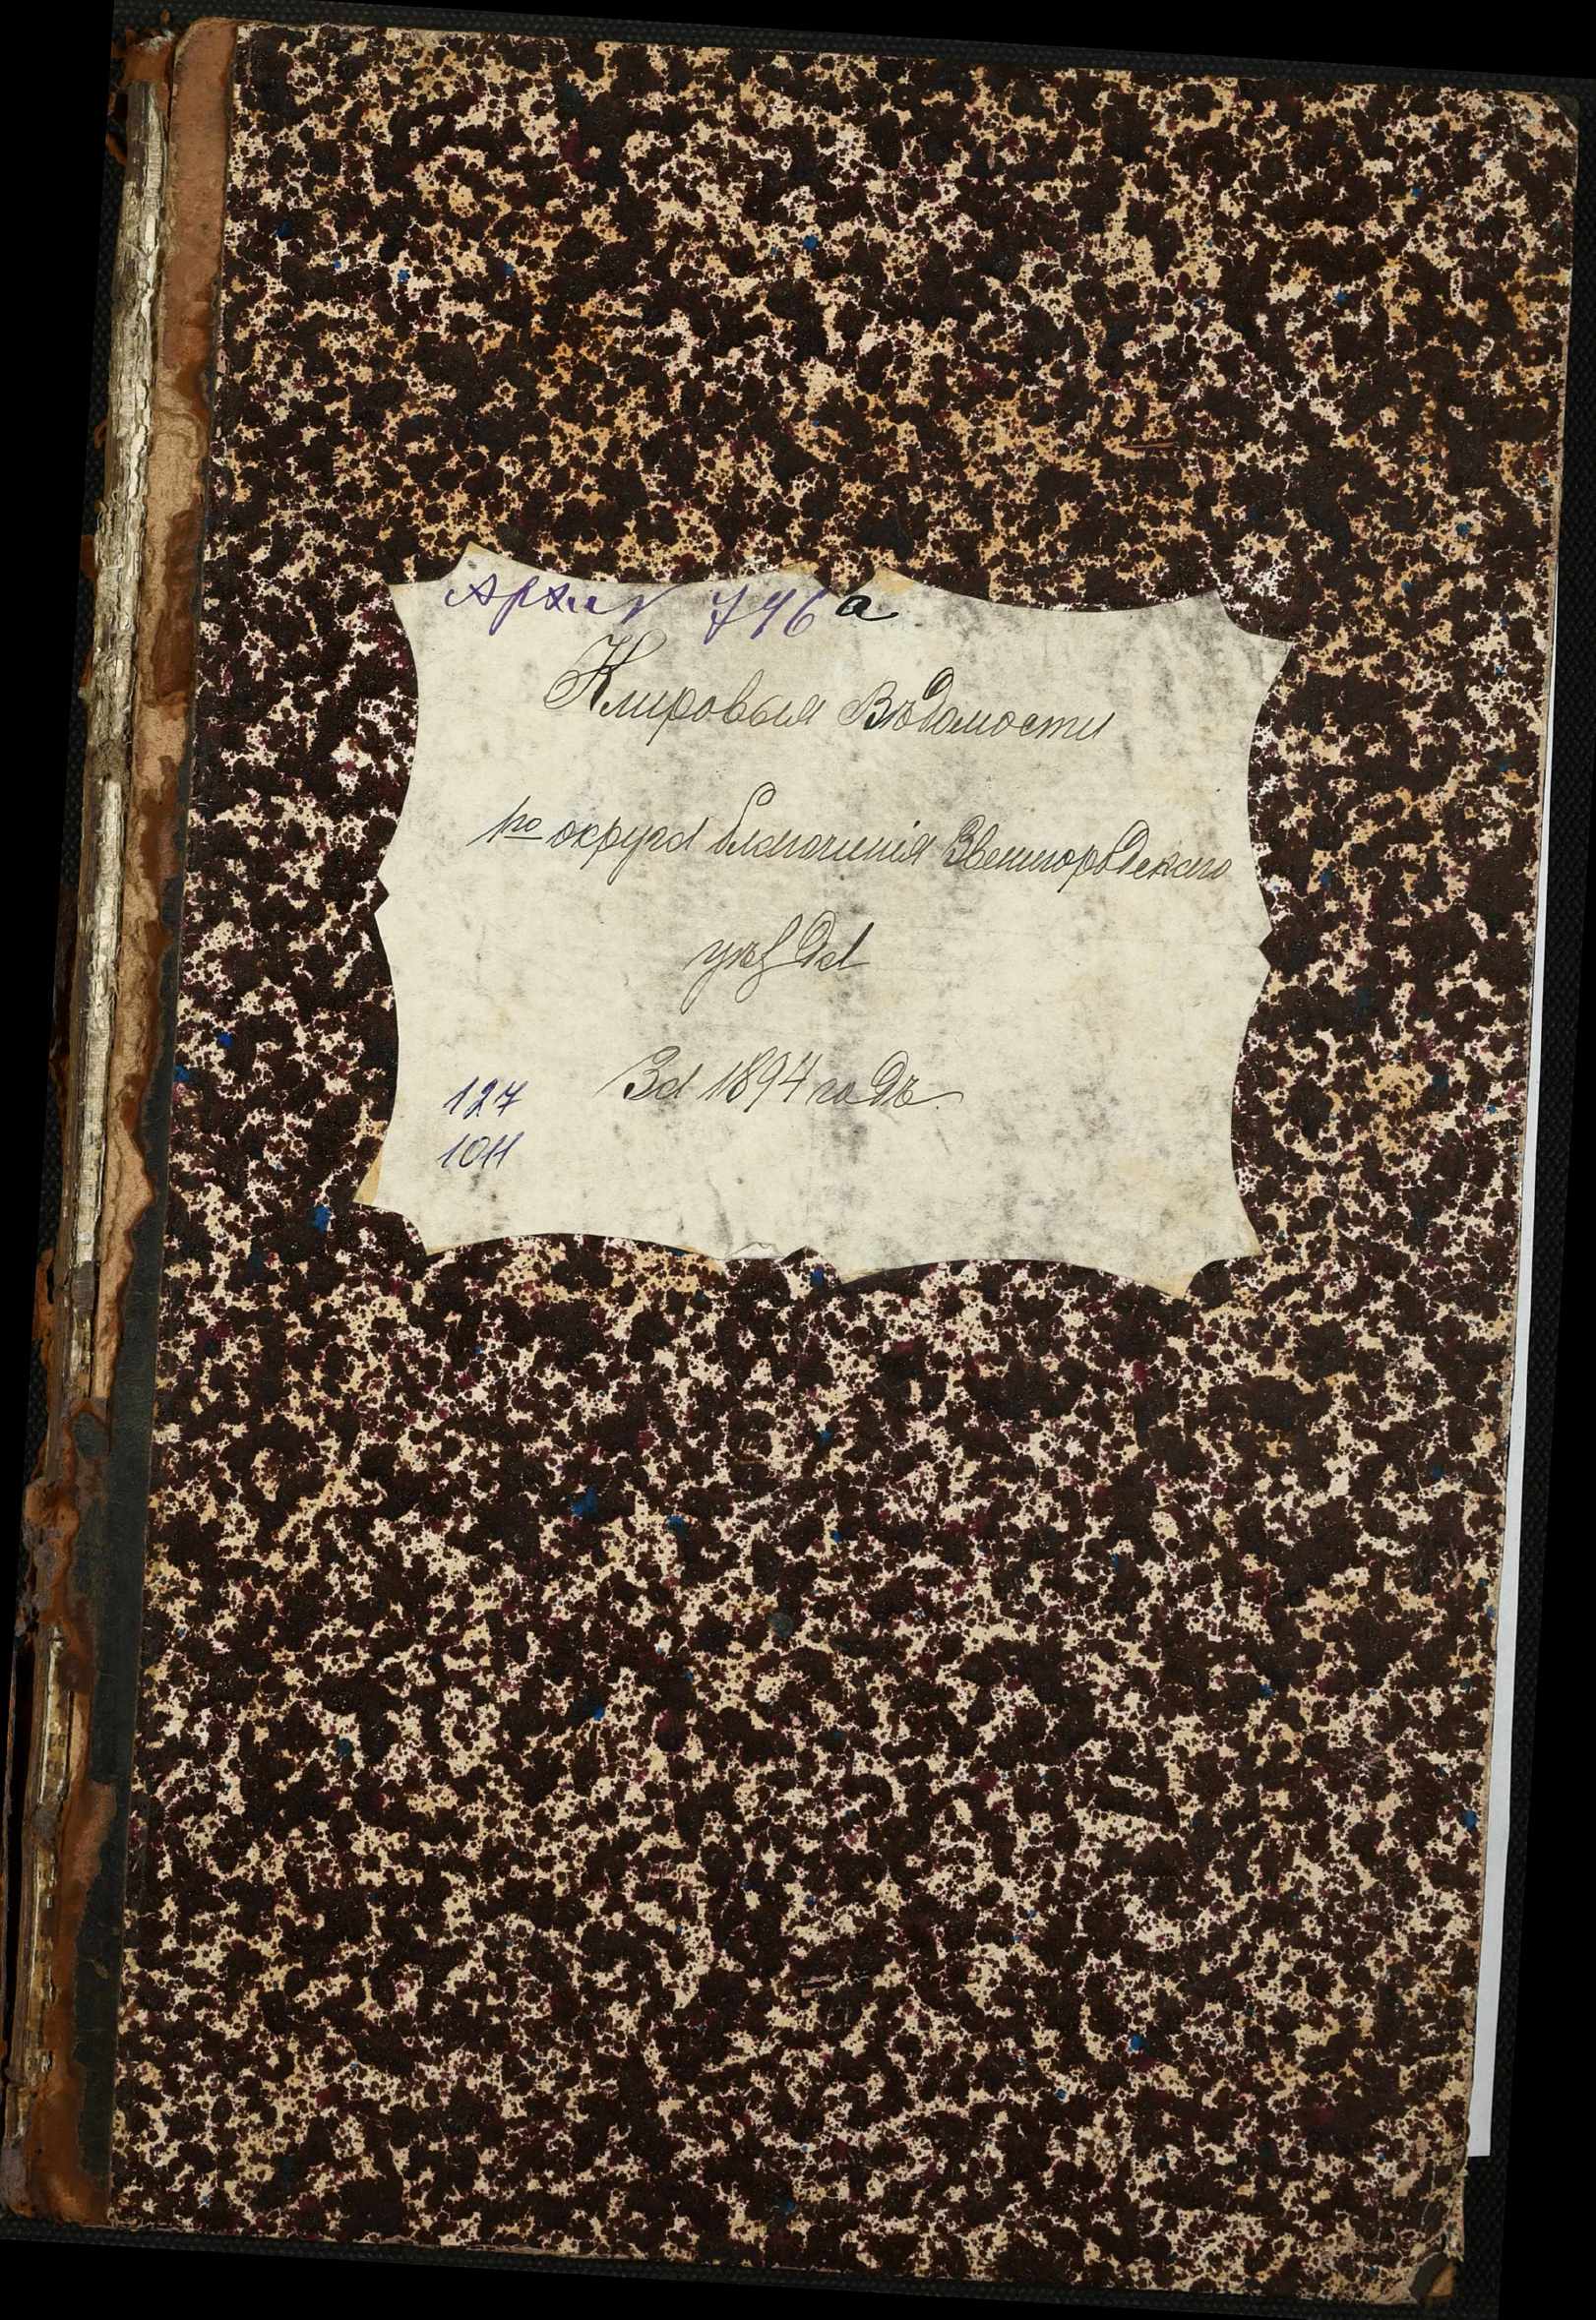 архив 796 а
Клировыя Вѣдомости
1го округа благочинія Звенигородскаго
уѣзда
За 1894 годъ.
127
1011